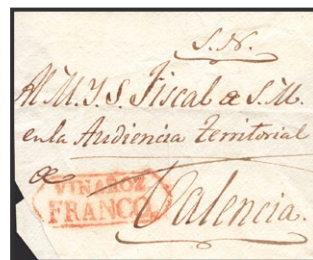 S. N.
Al M. Y. S. Fiscal de S. M.
en la Audiencia Territorial
de
VINAROZ
FRANCO
Valencia.